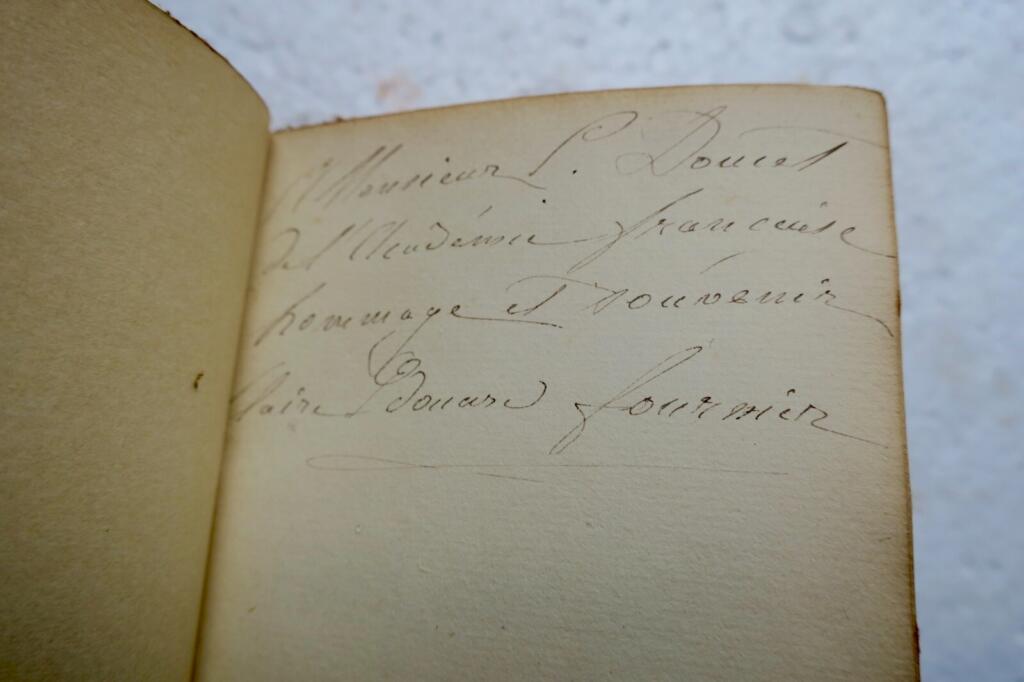 Monsieur C. Doucet
de l'Académie française
hommage et souvenir
Claire Edouard fournier